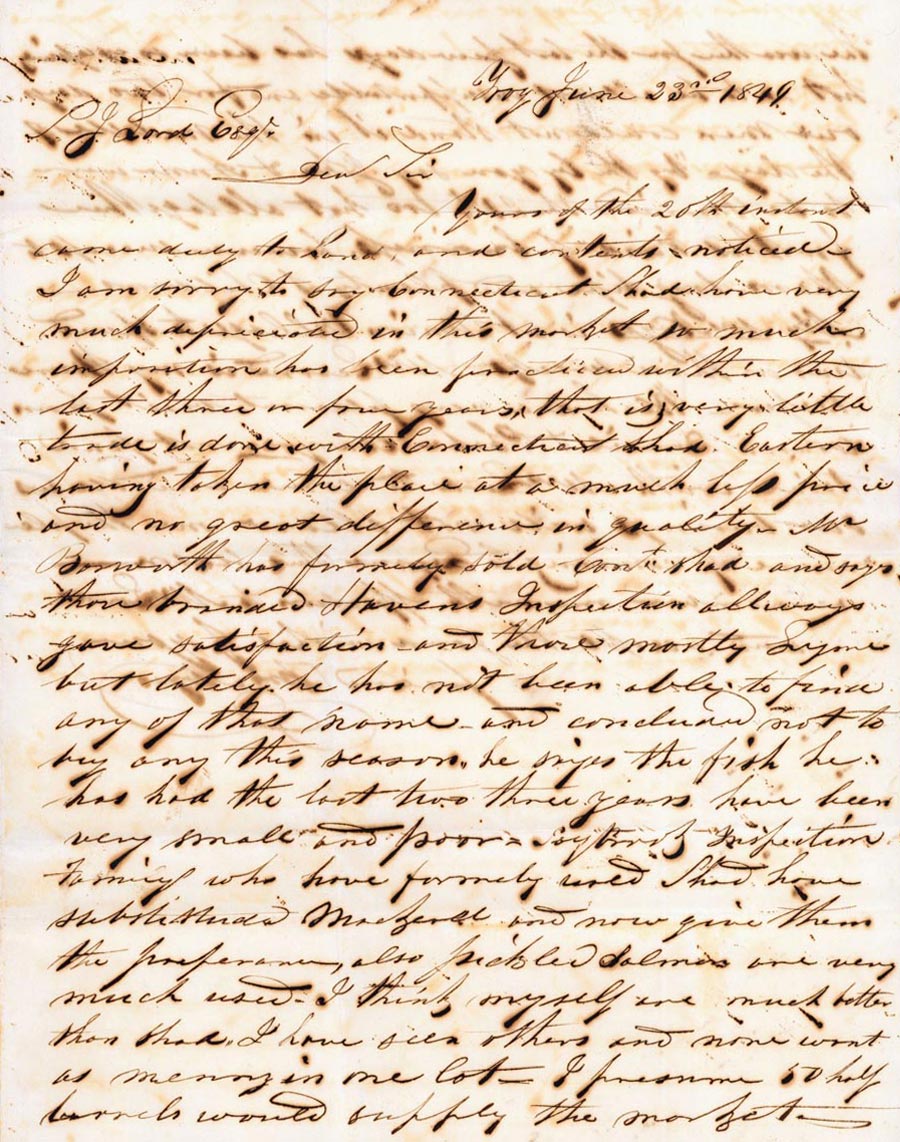 Troy June 23rd 1849
J. Lord Esqr.
Dear Sir
Yours of the 20th instant
came duly to hand, and contents noticed.
I am sorry to say Connecticut Shad have very
much depriciated in this market so much
imposition has been practiced within the
last three or four years, that is, very little
trade is done with Connecticut Shad. Eastern
having taken the place at a much less price
and no great difference in quality. Mr
Bosworth has formely sold Cont. shad and says
those branded Havens Inspection allways
gave satisfaction and those mostly Lyme
but lately he has not been able to find
any of that name and concluded not to
buy any this season. he says the fish he
has had the last two three years have been
very small and poor = Saybrook Inspection
Familys who have formely used Shad have
substituded Mackerell and now give them
the preferance, also pickled Salmon are very
much used. I think myself are much better
than shad. I have seen others and none want
as menny in one lot = I presume 50 half
barrels would supply the market